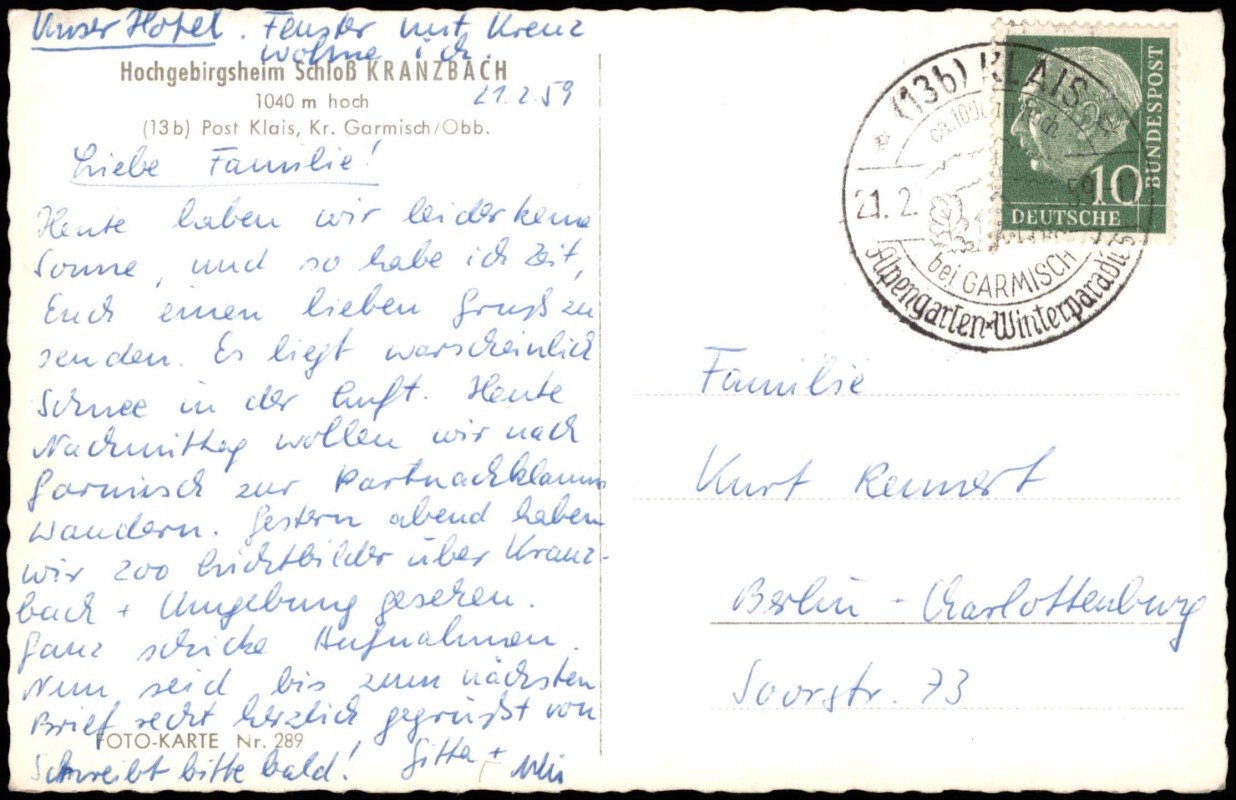 Unser Hotel. Fenster mit Kreuz
wohne ich.
Hochgebirgsheim Schloß KRANZBACH
1040 m hoch
21.2.59
(13b) Post Klais, Kr. Garmisch/Obb.
Liebe Familie!
Heute haben wir leider keine
Sonne, und so habe ich Zeit,
Euch einen lieben Gruß zu
senden. Es liegt warscheinlich
Schnee in der Luft. Heute
Nachmittag wollen wir nach
Garmisch zur Partnachklamm
wandern. Gestern abend haben
wir 200 Lichtbilder über Kranz-
bach + Umgebung gesehen.
Ganz schicke Aufnahmen.
Nun seid bis zum nächsten
Brief recht herzlich gegrüßt von
FOTO-KARTE Nr. 289
Schreibt bitte bald! Gitta +
(13b) KLAIS
21.2.59
bei GARMISCH
Alpengarten * Winterparadies
BUNDESPOST
10
DEUTSCHE
Familie
Kurt Rennert
Berlin - Charlottenburg
Soorstr. 73